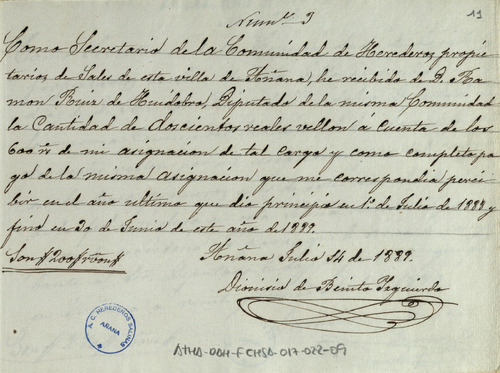 Numº 9
19
Como Secretario de la Comunidad de Herederos propie-
tarios de Sales de esta villa de Añana, he recibido de D. Ra-
mon Ruiz de Huidobro, Diputado de la misma Comunidad
la Cantidad de doscientos reales vellon á cuenta de los
600 rs de mi asignacion de tal cargo y como completo pa-
go de la misma asignacion que me correspondia perci-
bir en el año ultimo que dio principio en 1º de Julio de 1888 y
finó en 30 de Junio de este año de 1889.
Añana Julio 14 de 1889.
Son 200 rs von
Dionisio de Benito Yzquierdo
A. C. HEREDEROS SALINAS
AÑANA
ATHA-DAH-FCHSA-017-022-09